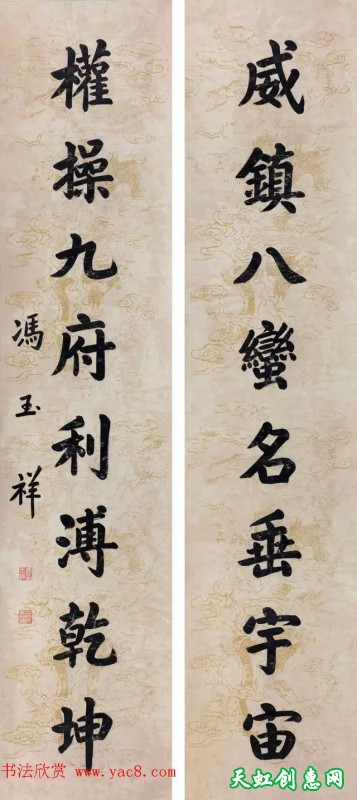 威鎮八蠻名垂宇宙
權操九府利溥乾坤
馮玉祥
书法欣赏 www.yac8.com
天虹创惠网